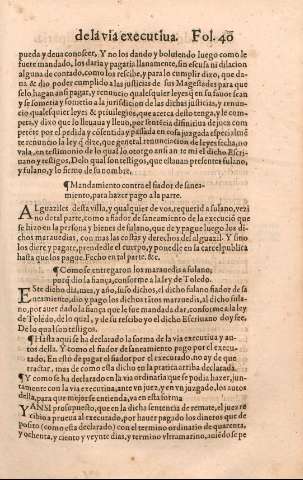 de la via executiua. Fol. 40
pueda y deua conoscer, Y no los dando y boluiendo luego como le
fuere mandado, los daria y pagaria llanamente, sin escusa ni dilacion
alguna de contado, como los rescibe, y para lo cumplir dixo, que da-
ua & dio poder cumplido a las justicias de sus Magestades para que
selo hagan ansi pagar, y renuncio qualesquier leyes q̃ en su fauor sean
y se sometia y sometio a la jurisdicion de las dichas justicias, y renun-
cio qualesquier leyes & priuilegios, que acerca desto tenga, y le com-
peta, y dixo que lo lleuaua y lleuo, por sentencia difinitiua de juez com
petẽte por el pedida y cõsentida y passada en cosa juzgada especialmẽ
te renuncio la ley q̃ dize, que general renunciacion de leyes fecha, no
vala, en testimonio de lo qual lo otorgo ansi ante mi el dicho Escri-
uano y testigos, De lo qual son testigos, que estauan presentes fulano,
y fulano, y lo firmo de su nombre.
¶ Mandamiento contra el fiador de sanea-
miento, para hazer pago a la parte.
ALguaziles desta villa, y qualquier de vos, requerid a fulano, vezi
no de tal parte, como a fiador de saneamiento de la execució que
se hizo en la persona y bienes de fulano, que de y pague luego los di-
chos marauedis, con mas las costas y derechos del alguazil. Y sino
los diere y pagare, prendelde el cuerpo, y poneldo en la carcel publica
hasta que los pague. Fecho en tal parte. &c.
¶ Como se entregaron los marauedis a fulano,
porq̃ dio la fiança, conforme a la ley de Toledo.
ESte dicho dia, mes, y año, suso dichos, el dicho fulano fiador de sa
neamiento, dio y pago los dichos tãtos marauedis, al dicho fula-
no, por auer dado la fiança que le fue mandada dar, conforme a la ley
de Toledo, de lo qual, y de su recibo yo el dicho Escriuano doy fee.
De lo qual son testigos.
¶ Hasta aqui se ha declarado la forma de la via executiua y au-
tos della. Y como el fiador de saneamiento pago por el execu-
tado, En esto de pagar el fiador por el executado, no ay de que
tractar, mas de como esta dicho en la pratica arriba declarada.
¶ Y como se ha declarado en la via ordinaria que se podia hazer, jun-
tamente con la via executiua, ante vn juez, y en vn juzgado, los autos
della, para que mejor se entienda, va en esta forma
YANSI prosupuesto, que en la dicha sentencia de remate, el juez re
cibio a prueua al executado, por hazer pagado los dineros que de
posito (como esta declarado) con el termino ordinario de quarenta,
y ochenta, y ciento y veynte dias, y termino vltramarino, auiẽdose pe